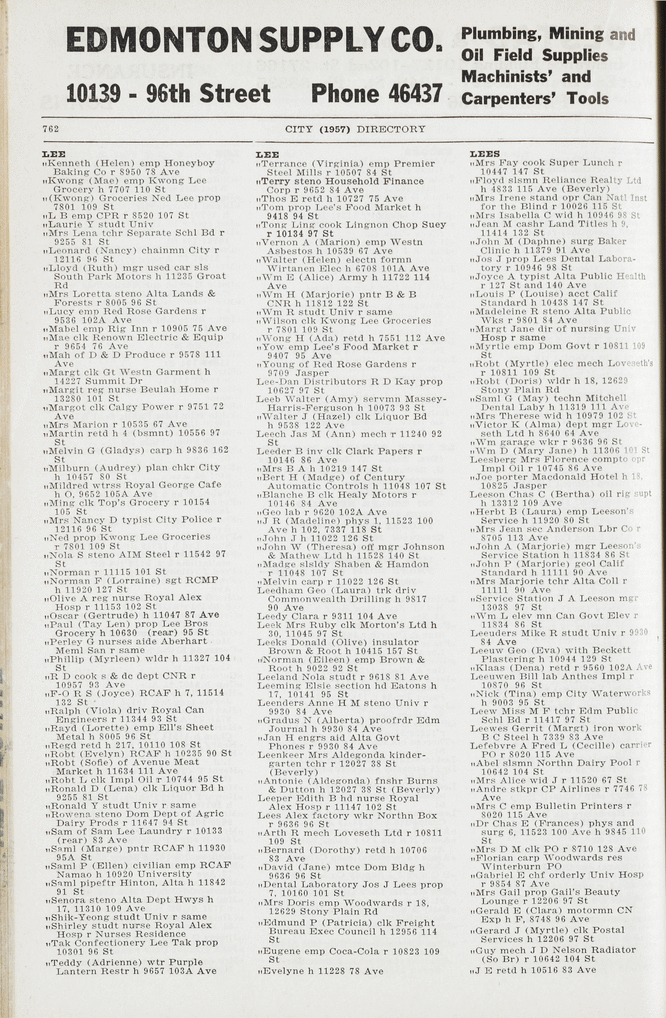 EDMONTON SUPPLY CO.
10139 - 96th Street Phone 46437
Plumbing, Mining and
Oil Field Supplies
Machinists' and
Carpenters' Tools
762
CITY (1957) DIRECTORY
LEE
"Kenneth (Helen) emp Honeyboy
Baking Co r 8950 78 Ave
"Kwong (Mae) emp Kwong Lee
Grocery h 7707 110 St
"(Kwong) Groceries Ned Lee prop
7801 109 St
"L B emp CPR r 8520 107 St
"Laurie Y studt Univ
"Mrs Lena tchr Separate Schl Bd r
9255 81 St
"Leonard (Nancy) chainmn City r
12116 96 St
"Lloyd (Ruth) mgr used car sls
South Park Motors h 11235 Groat
Rd
"Mrs Loretta steno Alta Lands &
Forests r 8005 96 St
"Lucy emp Red Rose Gardens r
9536 102A Ave
"Mabel emp Rig Inn r 10905 75 Ave
"Mae clk Renown Electric & Equip
r 9654 76 Ave
"Mah of D & D Produce r 9578 111
Ave
"Margt clk Gt Westn Garment h
14227 Summit Dr
"Margit reg nurse Beulah Home r
13280 101 St
"Margot clk Calgy Power r 9751 72
Ave
"Mrs Marion r 10535 67 Ave
"Martin retd h 4 (bsmnt) 10556 97
St
"Melvin G (Gladys) carp h 9836 162
St
"Milburn (Audrey) plan chkr City
h 10457 80 St
"Mildred wtrss Royal George Cafe
h O, 9652 105A Ave
"Ming clk Top's Grocery r 10154
105 St
"Mrs Nancy D typist City Police r
12116 96 St
"Ned prop Kwong Lee Groceries
r 7801 109 St
"Nola S steno AIM Steel r 11542 97
St
"Norman r 11115 101 St
"Norman F (Lorraine) sgt RCMP
h 11920 127 St
"Olive A reg nurse Royal Alex
Hosp r 11153 102 St
"Oscar (Gertrude) h 11047 87 Ave
"Paul (Tay Len) prop Lee Bros
Grocery h 10630 (rear) 95 St
"Perley G nurses aide Aberhart
Meml San r same
"Phillip (Myrleen) wldr h 11327 104
St
"R D cook s & dc dept CNR r
10957 93 Ave
"F-O R S (Joyce) RCAF h 7, 11514
132 St
"Ralph (Viola) driv Royal Can
Engineers r 11344 93 St
"Rayd (Lorette) emp Ell's Sheet
Metal h 8005 96 St
"Regd retd h 217, 10110 108 St
"Robt (Evelyn) RCAF h 10235 90 St
"Robt (Sofie) of Avenue Meat
Market h 11634 111 Ave
"Robt L clk Impl Oil r 10744 95 St
"Ronald D (Lena) clk Liquor Bd h
9255 81 St
"Ronald Y studt Univ r same
"Rowena steno Dom Dept of Agric
Dairy Prods r 11647 94 St
"Sam of Sam Lee Laundry r 10133
(rear) 83 Ave
"Saml (Marge) pntr RCAF h 11930
95A St
"Saml P (Ellen) civilian emp RCAF
Namao h 10920 University
"Saml pipeftr Hinton, Alta h 11842
91 St
"Senora steno Alta Dept Hwys h
17, 11310 109 Ave
"Shik-Yeong studt Univ r same
"Shirley studt nurse Royal Alex
Hosp r Nurses Residence
"Tak Confectionery Lee Tak prop
10301 96 St
"Teddy (Adrienne) wtr Purple
Lantern Restr h 9657 103A Ave
LEE
"Terrance (Virginia) emp Premier
Steel Mills r 10507 84 St
"Terry steno Household Finance
Corp r 9652 84 Ave
"Thos E retd h 10727 75 Ave
"Tom prop Lee's Food Market h
9418 94 St
"Tong Ling cook Lingnon Chop Suey
r 10134 97 St
"Vernon A (Marion) emp Westn
Asbestos h 10539 67 Ave
"Walter (Helen) electn formn
Wirtanen Elec h 6708 101A Ave
"Wm E (Alice) Army h 11722 114
Ave
"Wm H (Marjorie) pntr B & B
CNR h 11812 122 St
"Wm R studt Univ r same
"Wilson clk Kwong Lee Groceries
r 7801 109 St
"Wong H (Ada) retd h 7551 112 Ave
"Yow emp Lee's Food Market r
9407 95 Ave
"Young of Red Rose Gardens r
9709 Jasper
Lee-Dan Distributors R D Kay prop
10627 97 St
Leeb Walter (Amy) servmn Massey-
Harris-Ferguson h 10073 93 St
"Walter J (Hazel) clk Liquor Bd
h 9538 122 Ave
Leech Jas M (Ann) mech r 11240 92
St
Leeder B inv clk Clark Papers r
10146 86 Ave
"Mrs B A h 10219 147 St
"Bert H (Madge) of Century
Automatic Controls h 11048 107 St
"Blanche B clk Healy Motors r
10146 84 Ave
"Geo lab r 9620 102A Ave
"J R (Madeline) phys 1, 11523 100
Ave h 102, 7337 118 St
"John J h 11022 126 St
"John W (Theresa) off mgr Johnson
& Mathew Ltd h 11528 140 St
"Madge slsldy Shaben & Hamdon
r 11048 107 St
"Melvin carp r 11022 126 St
Leedham Geo (Laura) trk driv
Commonwealth Drilling h 9817
90 Ave
Leedy Clara r 9311 104 Ave
Leek Mrs Ruby clk Morton's Ltd h
30, 11045 97 St
Leeks Donald (Olive) insulator
Brown & Root h 10415 157 St
"Norman (Eileen) emp Brown &
Root h 9022 92 St
Leeland Nola studt r 9618 81 Ave
Leeming Elsie section hd Eatons h
17, 10141 95 St
Leenders Anne H M steno Univ r
9930 84 Ave
"Gradus N (Alberta) proofrdr Edm
Journal h 9930 84 Ave
"Jan H engrs aid Alta Govt
Phones r 9930 84 Ave
Leenkeer Mrs Aldegonda kinder-
garten tchr r 12027 38 St
(Beverly)
"Antonie (Aldegonda) fnshr Burns
& Dutton h 12027 38 St (Beverly)
Leeper Edith B hd nurse Royal
Alex Hosp r 11147 102 St
Lees Alex factory wkr Northn Box
r 9636 96 St
"Arth R mech Loveseth Ltd r 10811
109 St
"Bernard (Dorothy) retd h 10706
83 Ave
"David (Jane) mtce Dom Bldg h
9636 96 St
"Dental Laboratory Jos J Lees prop
7, 10160 101 St
"Mrs Doris emp Woodwards r 18,
12629 Stony Plain Rd
"Edmund P (Patricia) clk Freight
Bureau Exec Council h 12956 114
St
"Eugene emp Coca-Cola r 10823 109
St
"Evelyne h 11228 78 Ave
LEES
"Mrs Fay cook Super Lunch r
10447 147 St
"Floyd slsmn Reliance Realty Ltd
h 4833 115 Ave (Beverly)
"Mrs Irene stand opr Can Natl Inst
for the Blind r 10026 115 St
"Mrs Isabella C wid h 10946 98 St
"Jean M cashr Land Titles h 9,
11414 132 St
"John M (Daphne) surg Baker
Clinic h 11379 91 Ave
"Jos J prop Lees Dental Labora-
tory r 10946 98 St
"Joyce A typist Alta Public Health
r 127 St and 140 Ave
"Louis P (Louise) acct Calif
Standard h 10438 147 St
"Madeleine R steno Alta Public
Wks r 9801 84 Ave
"Margt Jane dir of nursing Univ
Hosp r same
"Myrtle emp Dom Govt r 10811 109
St
"Robt (Myrtle) elec mech Loveseth's
r 10811 109 St
"Robt (Doris) wldr h 18, 12629
Stony Plain Rd
"Saml G (May) techn Mitchell
Dental Laby h 11319 111 Ave
"Mrs Therese wid h 10979 102 St
"Victor K (Alma) dept mgr Love-
seth Ltd h 8640 64 Ave
"Wm garage wkr r 9636 96 St
"Wm D (Mary Jane) h 11306 101 St
Leesberg Mrs Florence compto opr
Impl Oil r 10745 86 Ave
"Joe porter Macdonald Hotel h 18,
10825 Jasper
Leeson Chas C (Bertha) oil rig supt
h 13312 109 Ave
"Herbt B (Laura) emp Leeson's
Service h 11920 80 St
"Mrs Jean sec Anderson Lbr Co r
8705 113 Ave
"John A (Marjorie) mgr Leeson's
Service Station h 11834 86 St
"John P (Marjorie) geol Calif
Standard h 11111 90 Ave
"Mrs Marjorie tchr Alta Coll r
11111 90 Ave
"Service Station J A Leeson mgr
13038 97 St
"Wm L elev mn Can Govt Elev r
11834 86 St
Leeuders Mike R studt Univ r 9930
84 Ave
Leeuw Geo (Eva) with Beckett
Plastering h 10944 129 St
"Klaas (Dena) retd r 9560 102A Ave
Leeuwen Bill lab Anthes Impl r
10870 96 St
"Nick (Tina) emp City Waterworks
h 9003 95 St
Leew Miss M F tchr Edm Public
Schl Bd r 11417 97 St
Leewes Gerrit (Margt) iron work
B C Steel h 7339 83 Ave
Lefebvre A Fred L (Cecille) carrier
PO r 8020 115 Ave
"Abel slsmn Northn Dairy Pool r
10642 104 St
"Mrs Alice wid J r 11520 67 St
"Andre stkpr CP Airlines r 7746 78
Ave
"Mrs C emp Bulletin Printers r
8020 115 Ave
"Dr Chas E (Frances) phys and
surg 6, 11523 100 Ave h 9845 110
St
"Mrs D M clk PO r 8710 128 Ave
"Florian carp Woodwards res
Winterburn PO
"Gabriel E chf orderly Univ Hosp
r 9854 87 Ave
"Mrs Gail prop Gail's Beauty
Lounge r 12206 97 St
"Gerald E (Clara) motormn CN
Exp h F, 8748 96 Ave
"Gerard J (Myrtle) clk Postal
Services h 12206 97 St
"Guy mech J D Nelson Radiator
(So Br) r 10642 104 St
"J E retd h 10516 83 Ave